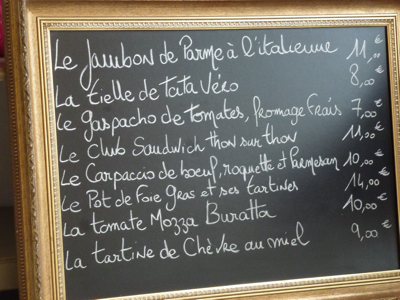 Le Jambon de Parme à l'italienne 11,00€
La tielle de tata Véro 8,00€
Le gaspacho de tomates, fromage frais 7,00€
Le Club Sandwich thon sur thon 11,00€
Le Carpaccio de boeuf, roquette et Parmesan 10,00€
Le Pot de Foie Gras et ses tartines 14,00€
La tomate Mozza Buratta 10,00€
La tartine de Chèvre au miel 9,00€